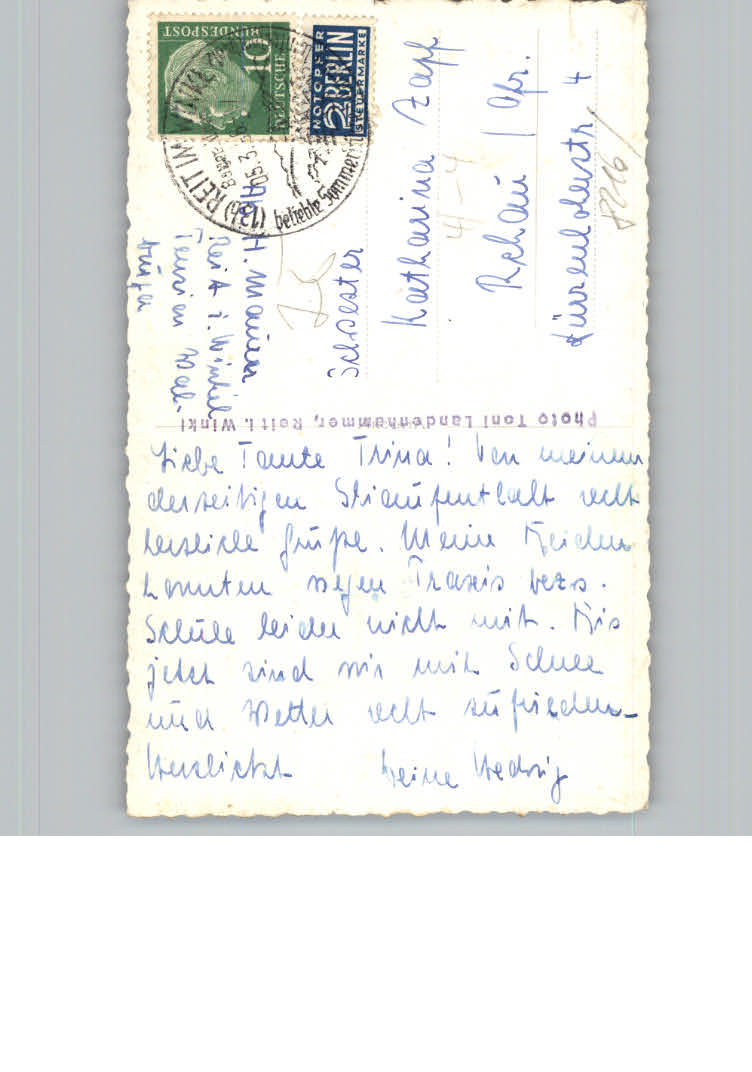 Liebe Tante Trina! Von meinem
derzeitigen Skiaufenthalt recht
herzliche Grüße. Meine Beiden
konnten wegen Praxis bezw.
Schule leider nicht mit. Bis
jetzt sind wir mit Schnee
und Wetter recht zufrieden.
Herzlichst Deine Hedwig
Photo Toni Landenhammer, Reit i. Winkl
Abs. H.
Reit i. Winkl
Pension Wal-
Schwester
Katharina Zapf
4-4
Rehau / Ofr.
4
8216/
DEUTSCHE
BUNDESPOST
10
NOTOPFER
2 BERLIN
STEUERMARKE
(13b) REIT IM WINKL
05.3.
beliebte Sommer